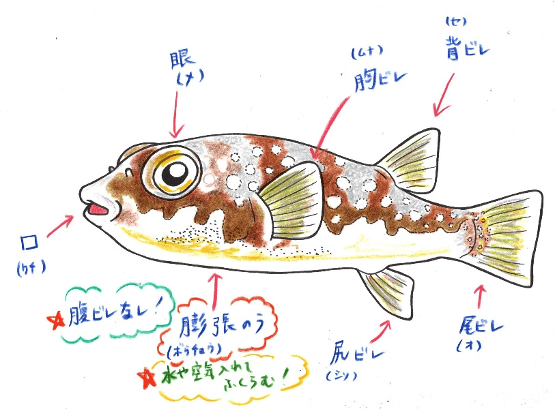 眼
(メ)
(ムナ)
胸ビレ
(セ)
背ビレ
口
(クチ)
☆腹ビレなし!
膨張のう
(ボウチョウ)
☆水や空気入れて
ふくらむ!
尻ビレ
(シリ)
尾ビレ
(オ)